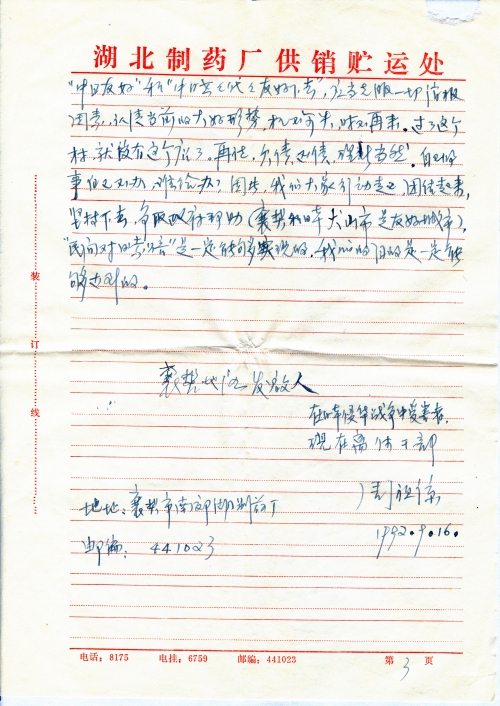 湖北制药厂供销贮运处
"中日友好"和"中日世世代代友好下去",应当克服一切消极
因素,认清当前的大好形势,机不可失,时不再来。过了这个
村,就没有这个店了。再说,欠债还债,理所当然,自己的
事自己不办,谁给办?因此,我们大家行动起来,团结起来,
坚持下去,争取政府帮助(襄樊和日本犬山市是友好城市),
"民间对日索赔"是一定能够实现的,我们的目的是一定能
够达到的。
襄樊地区发起人
在日本侵华战争中受害者,
现在离休干部
地址:襄樊市南郊湖制药厂
1992.9.16.
邮编:441023
装
订
线
电话:8175 电挂:6759 邮编:441023 第3页